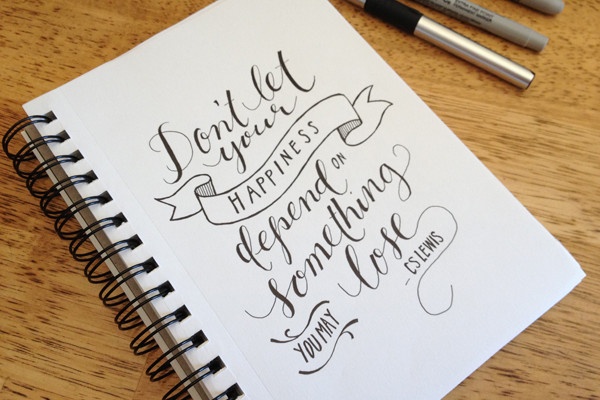 Don't let
your
HAPPINESS
depend ON
something
YOU MAY lose
- CS LEWIS